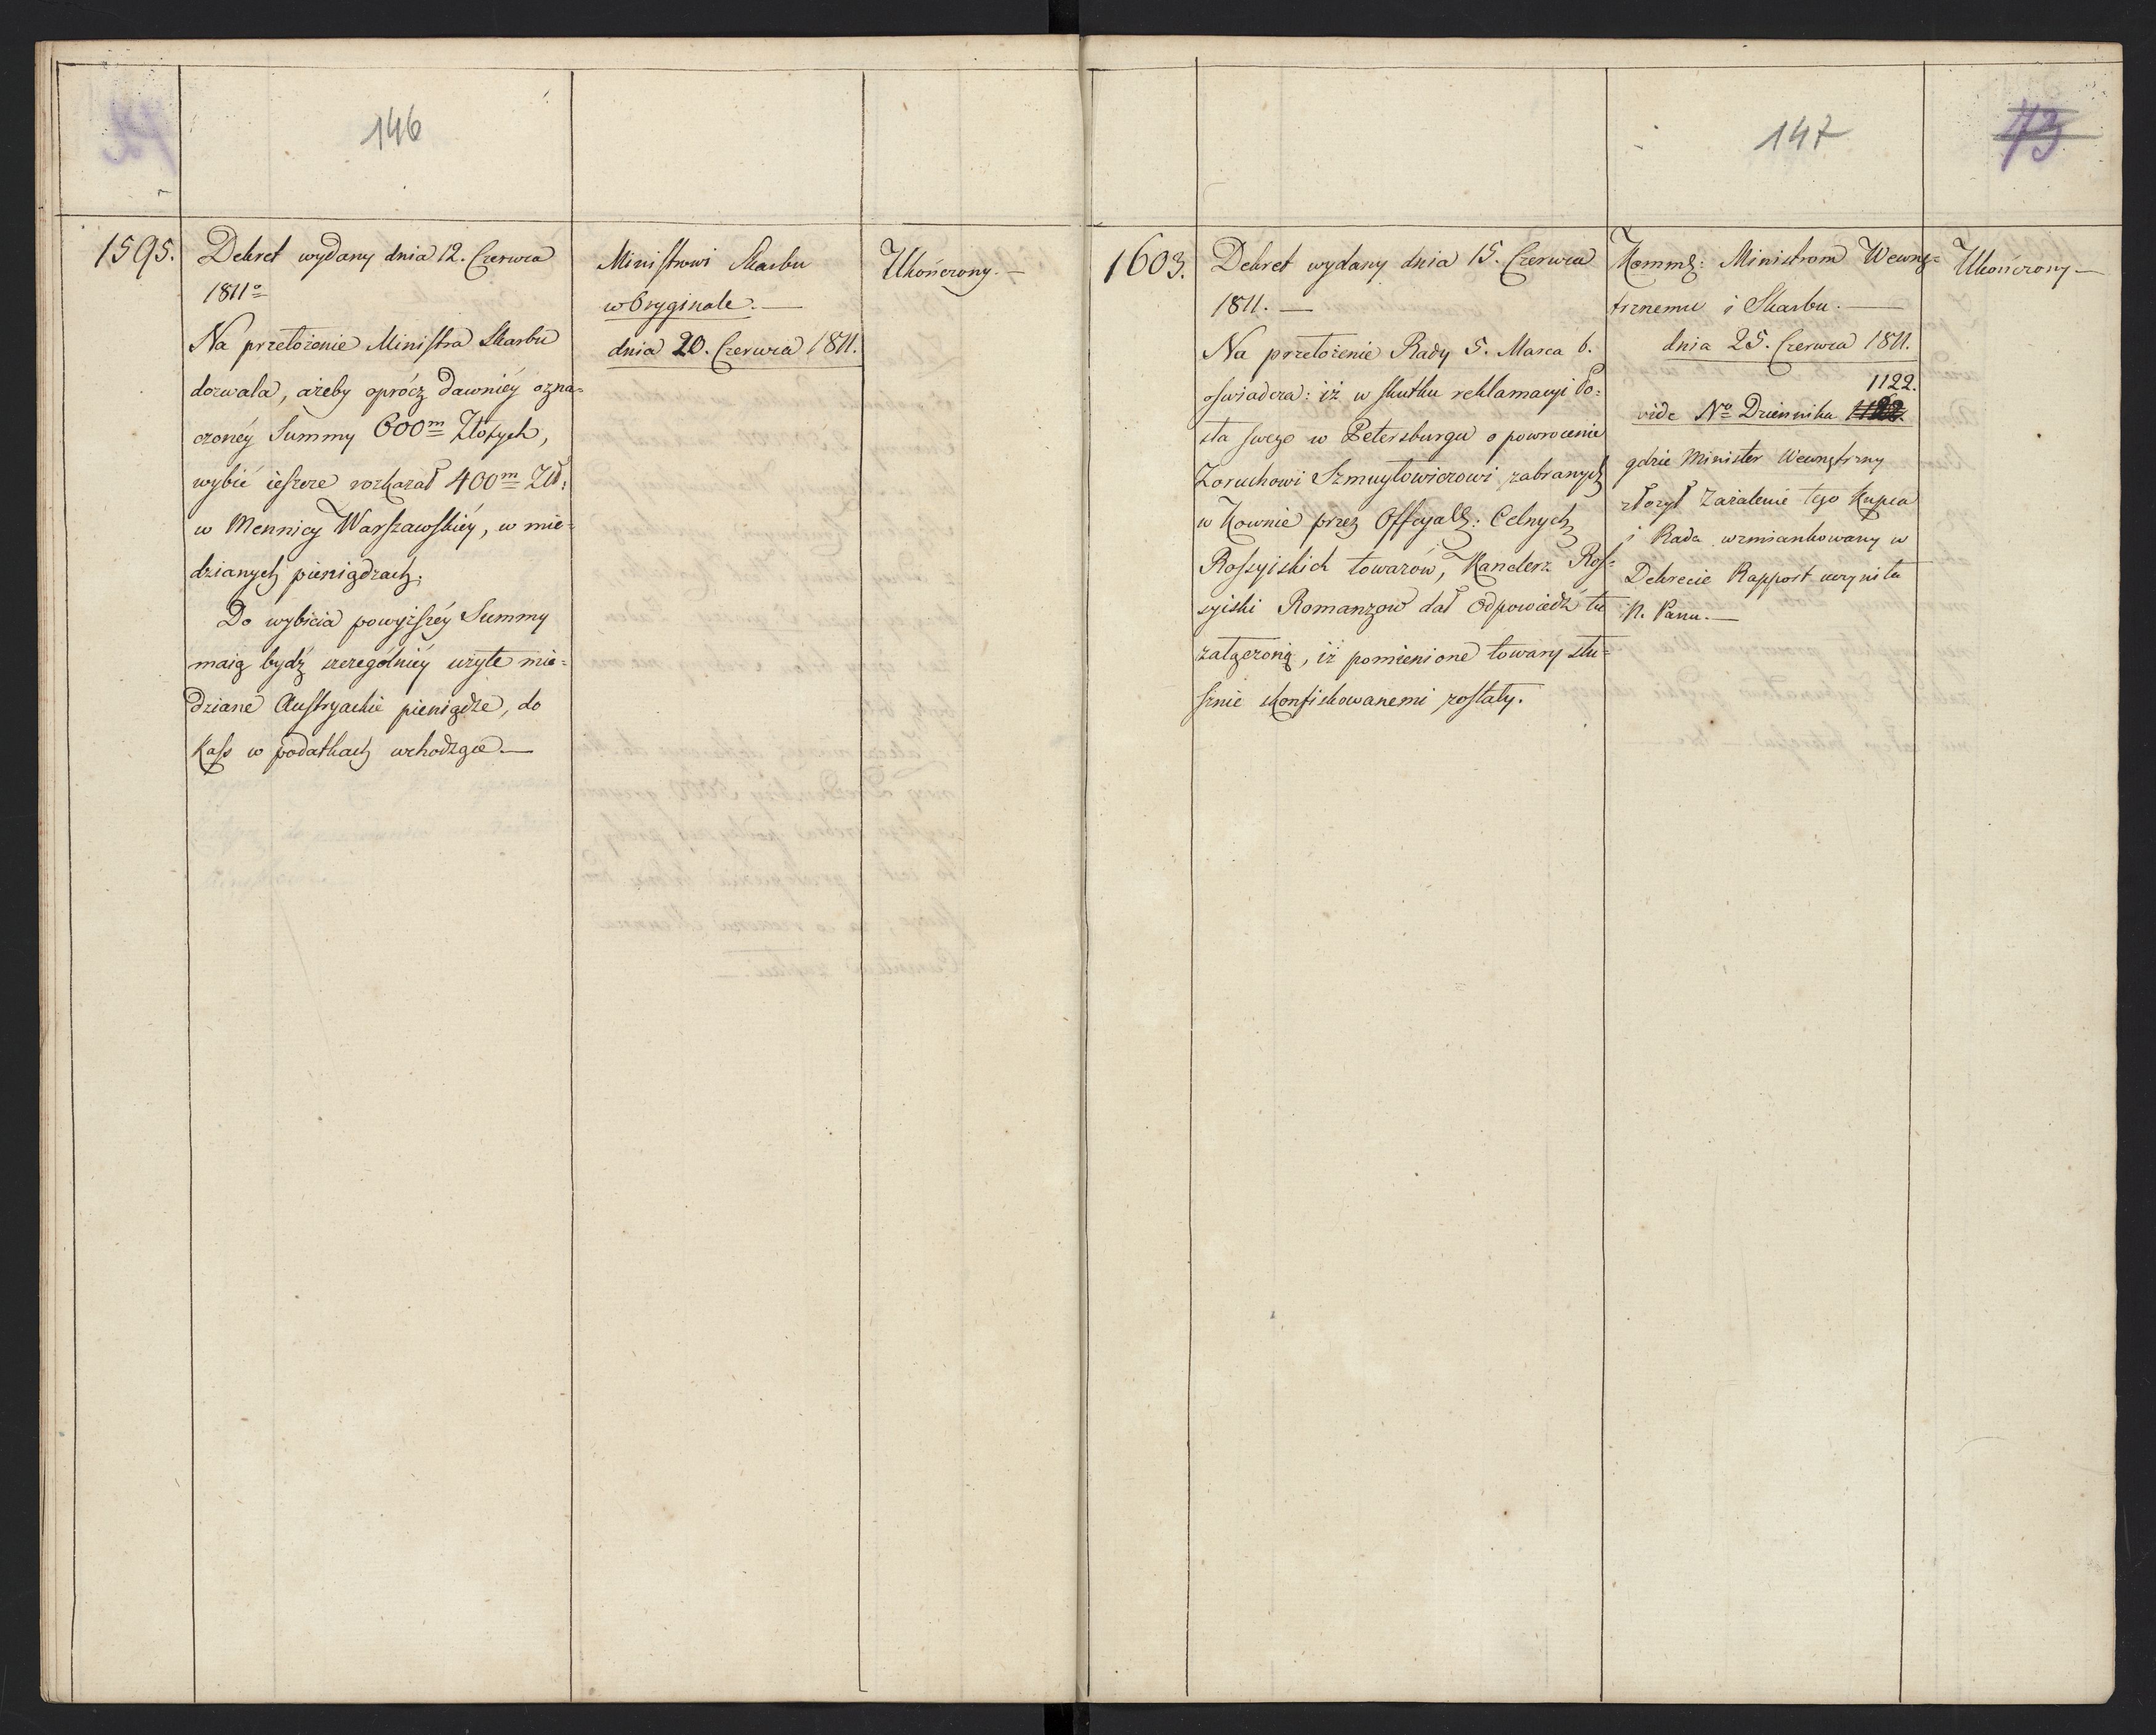 146
1595.
Dekret wydany dnia 12. Czerwca
1811º
Na przełożenie Ministra Skarbu
dozwala, ażeby oprócz dawniéy ozna=
czonéy Summy 600m Złotych,
wybić ieszcze rozkazał 400m Zło:
w Mennicy Warszawskiéy, w mie=
dzianych pieniądzach;
Do wybicia powyższéy Summy
maią bydź szczególniéy użyte mie=
dziane Austryackie pieniądze, do
Kass w podatkach wchodzące.—
Ministrowi Skarbu
w Oryginale.—
dnia 20. Czerwca 1811.
Ukończony.—
147
73
1603.
Dekret wydany dnia 15. Czerwca
1811.—
Na przełożenie Rady 5. Marca b.
oświadcza: iż w skutku reklamacyi Po=
sła swego w Petersburgu o powrócenie
Zoruchowi Szmuylowiczowi zabranych
w Kownie przez Officyall: Celnych
Rossyiskich towarów, Kanclerz Ros=
syiski Romanzow dał Odpowiedź tu
załączoną, iż pomienione towary słu=
sznie skonfiskowanemi zostały.
Ministrom Wewnę=
trznemu i Skarbu.—
dnia 25. Czerwca 1811.
1122.
vide No Dziennika
gdzie Minister Wewnętrzny
złożył Zażalenie tego Kupca
i Rada wzmiankowany w
Dekrecie Rapport uczyniła
N. Panu.—
Ukończony—